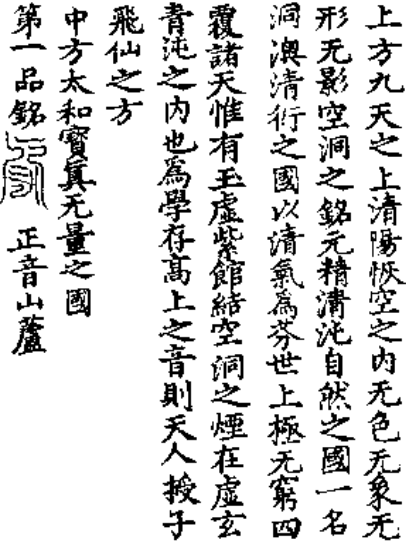 上方九天之上清陽恢空之内无色无象无
形无影空洞之銘元精清沌自然之國一名
洞澳清衍之國以清氣為芬世上極无窮四
覆諸天惟有玉虛紫館結空洞之煙在虛玄
青沌之内也為學存髙上之音則天人授子
飛仙之方
中方太和寳真无量之國
第一品銘 正音山蘆